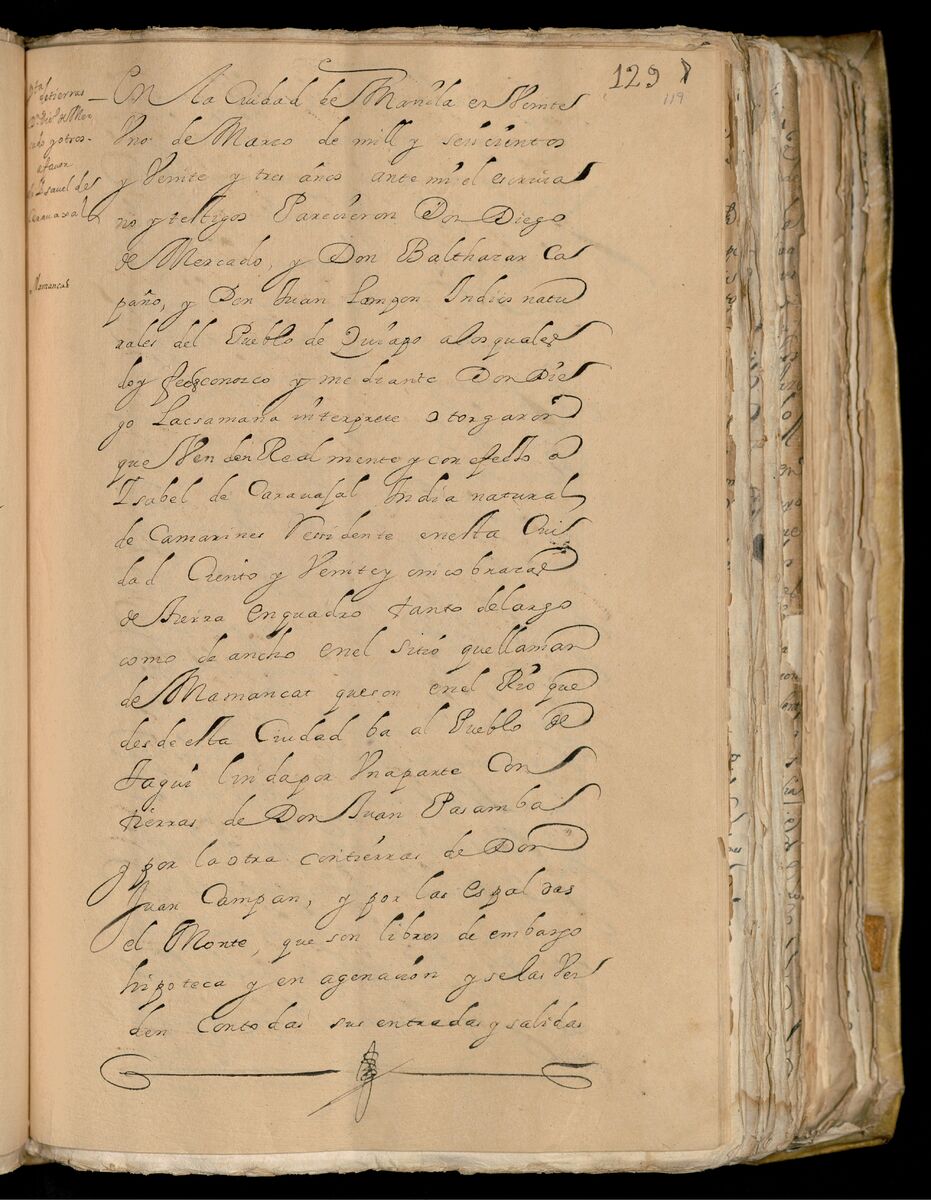 129
119
Vta
de tierras
Dn. Diº de Mer
cado y otros.
a fauor
de Ysauel de
Carauaxal
Mamancat
En la Ciudad de Manila en Veinte
Vno de Março de mill y seiscientos
y Veinte y tres años ante mi el escriua
no y testigos Parecieron Don Diego
de Mercado, y Don Balthazar Ca
paño, y Don Juan Lampon Indios natu
rales del Pueblo de Quiapo a los quales
doy fee q conozco y mediante Don Die
go Lacsamana interprete otorgaron
que Venden Realmente y con efecto a
Isabel de Carauajal India natural
de Camarines Residente en esta Ciu
dad Ciento y Veinte y cinco braças
de tierra en quadro tanto de largo
como de ancho en el sitio que llaman
de Mamancat que son en el Rio que
desde esta Ciudad ba al Pueblo de
tagui linda por Vna parte Con
tierras de Don Juan Pasamba
y por la otra con tierras de Don
Juan Campan, y por las espaldas
el Monte, que son libres de embargo
hipoteca y enagenacion y se las Ven
den con todas sus entradas y salidas